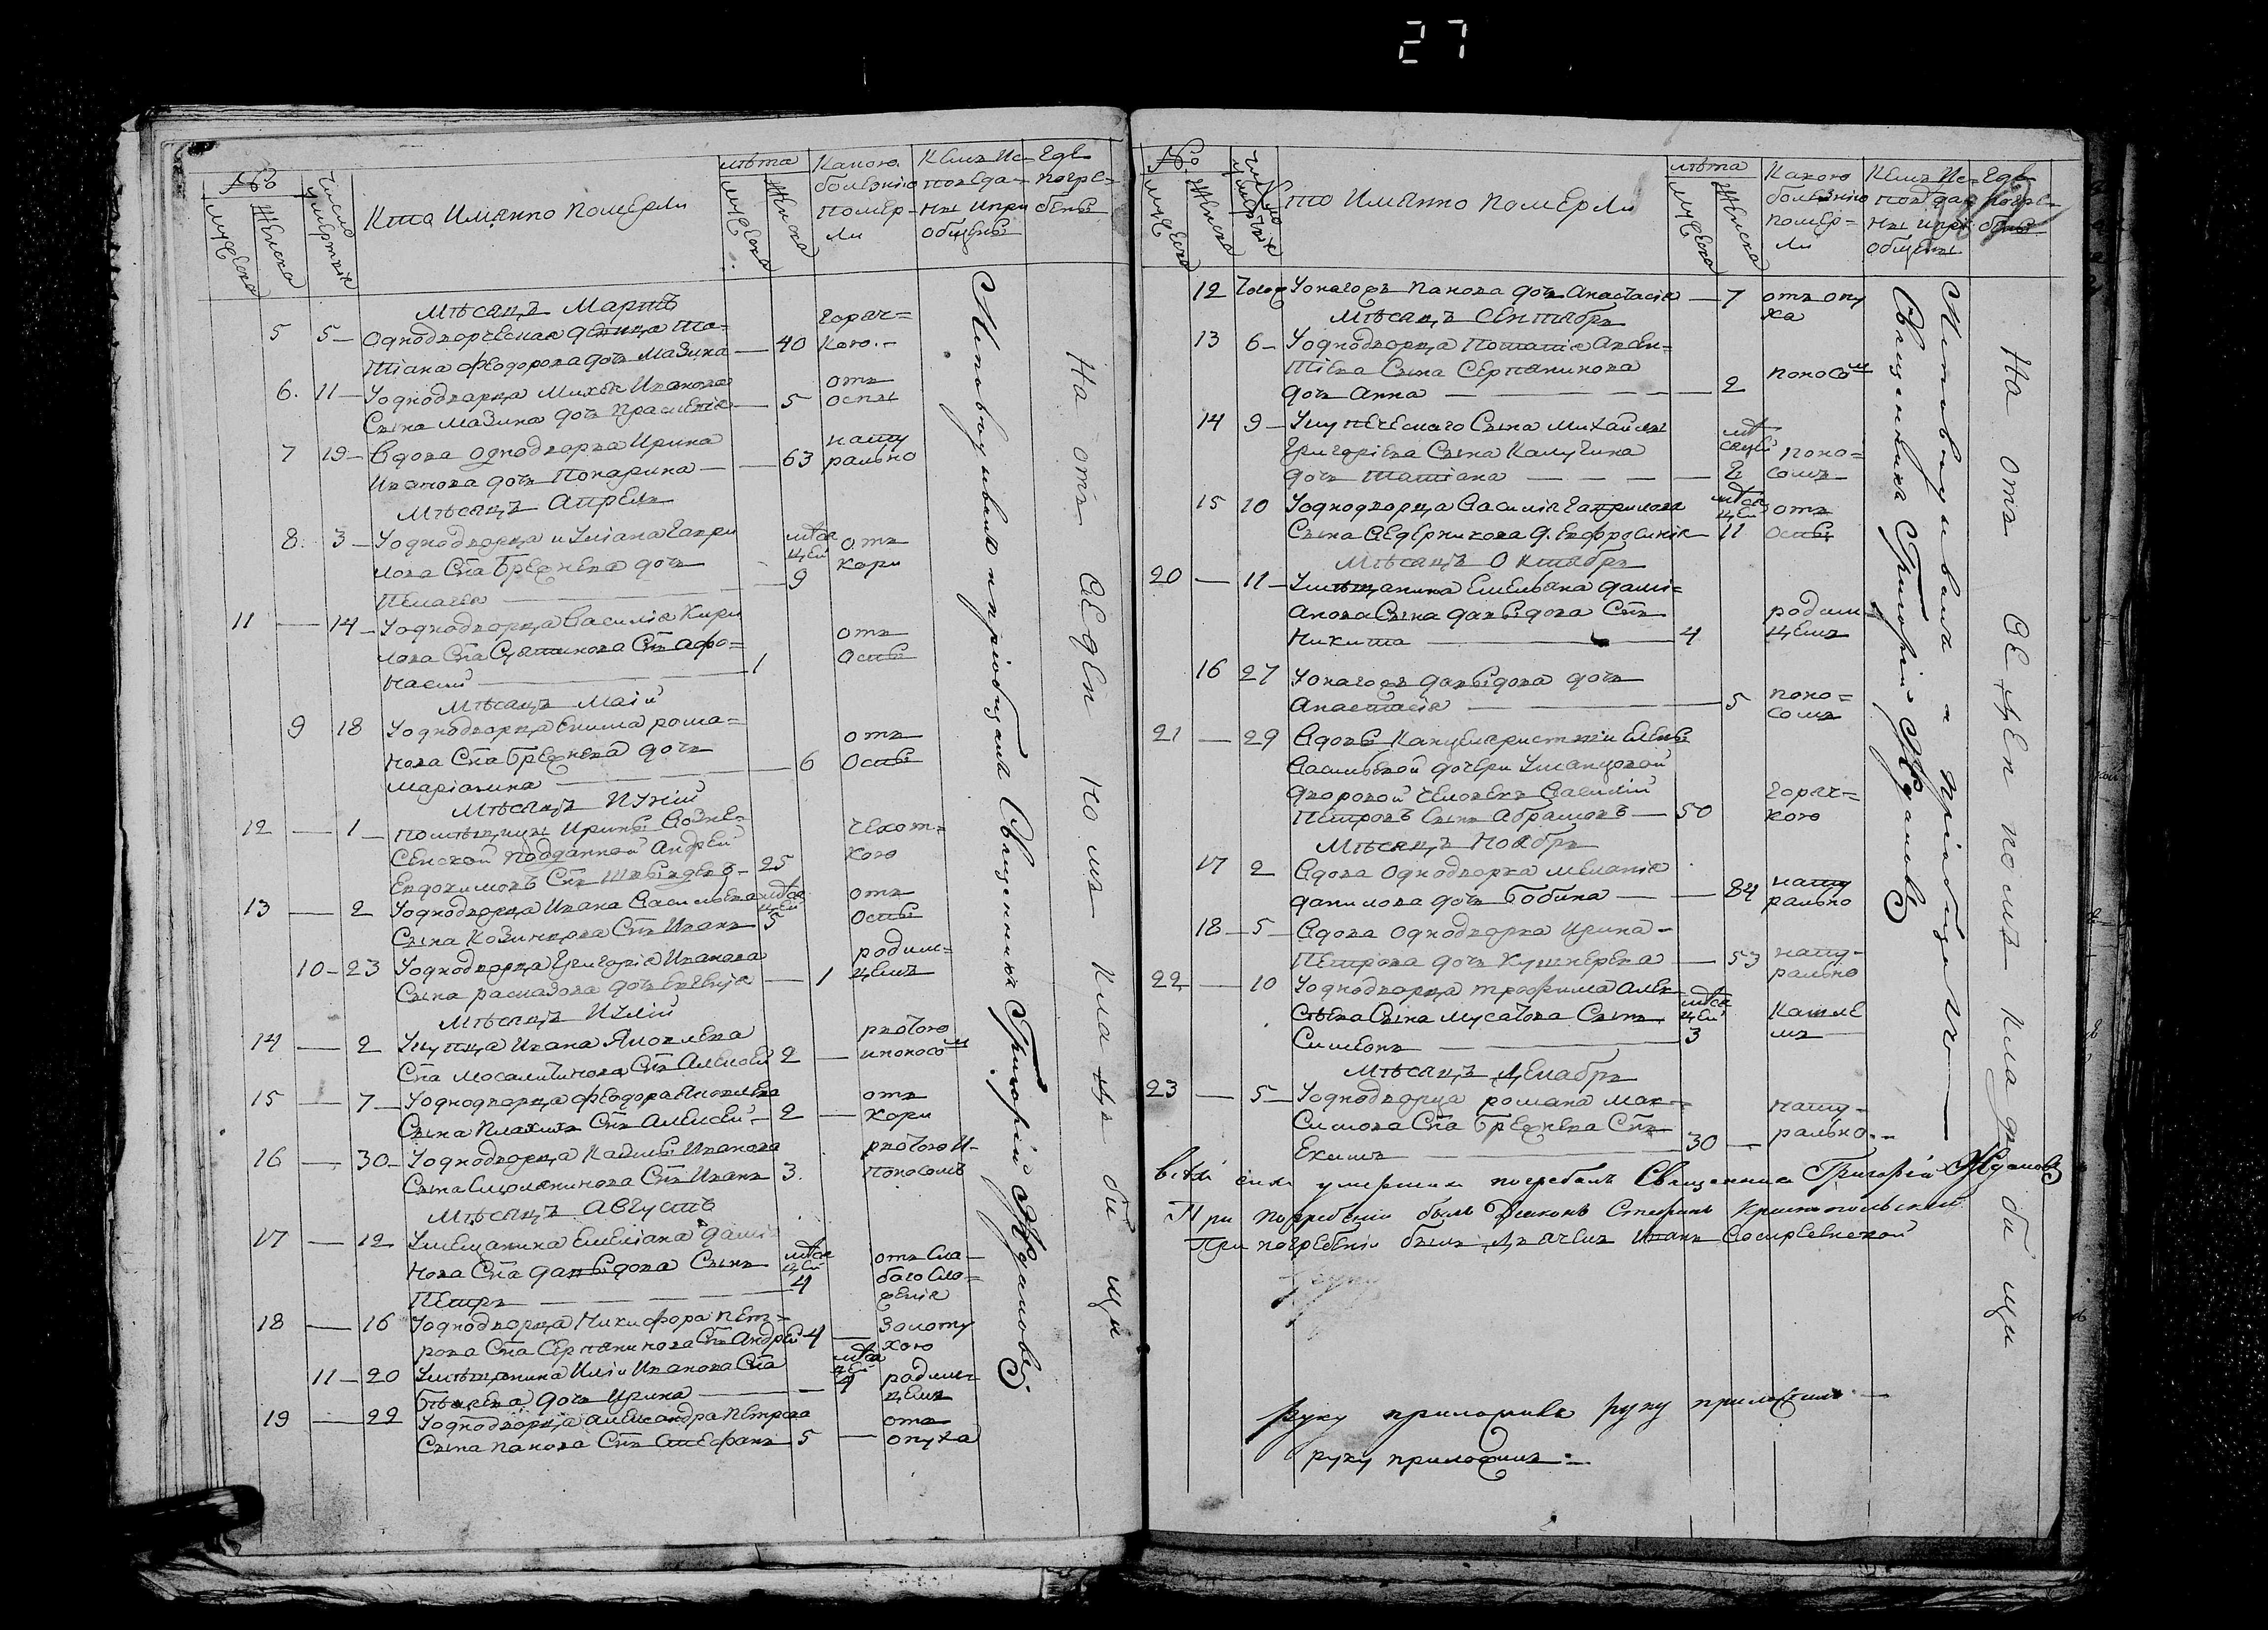 27
№ Число умертвія Кто Имянно Померли лѣта Какою болѣзнію Померли Кемъ Исповеданы ипріобщены Гдѣ Погребены
Мужеска Женска Мужеска Женска
Мѣсяцъ Мартъ
5 5 Однодворческая девица Та=
тіана Феодорова дочь Мазина — 40 Горяч=кою.
6. 11 — Уоднодворца Михея Иванова
Сына Мазина дочь — 5 отъ оспы
7 19 — Вдова однодворка Ирина
Иванова дочь Понарина — 63 натурально
Мѣсяцъ Апрель
8. 3 — Уоднодворца Гаври
лова Сна Брежнева дочь
Пелагея — мѣсяцей 9 отъ кори
11 — 14 — Уоднодворца Василія Кири
лова Сна Снъ Афо=
насий — 1 отъ Оспы
Мѣсяцъ Маій
9 18 Уоднодворца Екима рома=
нова Сна Брежнева дочь
маріанна — 6 отъ Оспы
Мѣсяцъ Іуній
12 — 1 — помѣщицы Ирины Возне=
Сенской подданной Андрей
Евдокимовъ Снъ — 25 чехоткою
13 — 2 Уоднодворца Ивана Васильева
Сына Снъ Иванъ мѣсяцей 5 отъ Оспы
10 — 23 Уоднодворца Григорія Иванова
Сына дочь Евгенія — 1 родимцемъ
Мѣсяцъ Іулій
14 — 2 Укупца Ивана Яковлева
Сна Снъ Алексей 2 — рвотою ипоносом
15 — 7 — Уоднодворца Феодора Яковлева
Сына Снъ Алексей — 2 — отъ Кори
16 — 30 — Уоднодворца Иванова
Сына Снъ Иванъ 3. рвотою и Поносомъ
Мѣсяцъ Августъ
17 — 12 Умещанина Емеліана Дамiа
нова Сна давыдова Сынъ
Петръ — мѣсяцей 4 отъ Слабаго Сложенія
18 — 16 Уоднодворца Никифора Пет=
рова Сна Серпянинова Снъ Андрей 4 — Золотухою
11 — 20 Умѣщанина Иліи Иванова Сна
дочь Ирина — мѣсяцей 4 родимцемъ
19 — 22 Уоднодворца Александра Петрова
Сына панова Снъ Стефанъ 5 — отъ опуха
Исповедывалъ и пріобщалъ Священникъ Григорій Ждановъ
На отъ Веден номъ Кладби щи
№ Число умертвія Кто Имянно Померли лѣта Какою болѣзнію помер=ли Кемъ Исповеданы ипріобщены Гдѣ погребены
Мужеска Женска Мужеска Женска
12 Тогож Уонагожъ Панова дочь Анастасія — 7 отъ опуха
Мѣсяцъ Сентябрь
13 6 — Уоднодворца Потапія Арсен=
тіева Сына Серпянинова
дочь Анна — 2 поносом
14 9 — Укупеческаго Сына Михаилы
Григоріева Сына Калугина
дочь Татіана — мѣсяцей 2 поно=сомъ
15 10 Уоднодворца Василія Гаврилова
Сына д. Евфросинія — мѣсяцей 11 отъ Оспы
Мѣсяцъ Октябрь
20 — 11 — Умѣщанина Емельяна дамі=
анова Сына давыдова Снъ
Никита — 4 родимцемъ
16 27 Уонагожъ давыдова дочь
Анастасія — 5 поно=сомъ
21 — 29 Вдовы Канцеляристши Елены
Васильевой дочери
дворовой человекъ Василій
Петровъ Сынъ Абрамовъ — 50 горяч=кою
Мѣсяцъ Ноябрь
17 2 Вдова Однодворка меланія
данилова дочь Бобина — 84 натурально
18 — 5 — Вдова Однодворка Ирина —
Петрова дочь Кушнерева — 53 натурально
22 — 10 Уоднодворца трофима Алек
сѣева Сына Мусатова Сынъ
Симеонъ — мѣсяцей 3 Кашлемъ
Мѣсяцъ Декабрь
23 — 5 — Уоднодворца романа Мак=
Симова Сна Брежнева Снъ
Екимъ — 30 — натурально
Исповедывалъ и пріобщалъ
Священникъ Григорій Ждановъ
На отъ Веден номъ Кладби щи
всѣхъ сихъ умершихъ погребалъ Священникъ Григорій Ждановъ
При погребеніи былъ Діаконъ Стефанъ
При погребеніи былъ Дьячекъ Иванъ
руку приложилъ руку приложилъ —
руку приложилъ —